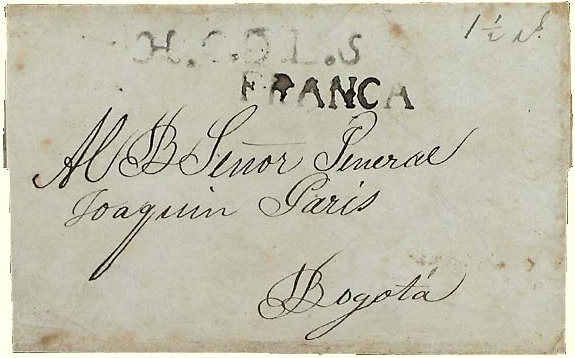 1 ½ r.
H.C.D.L.S
FRANCA
Al B Señor General
Joaquin Paris
Bogotá